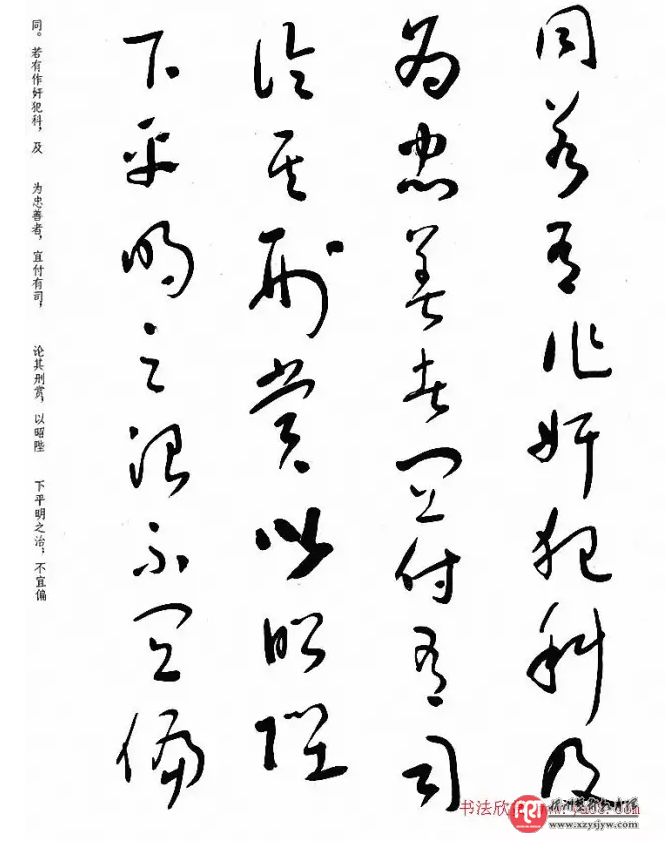 同若有作奸犯科及
为忠善者宜付有司
论其刑赏以昭陛
下平明之治不宜偏
同。若有作奸犯科，及
为忠善者，宜付有司，
论其刑赏，以昭陛
下平明之治；不宜偏
书法欣
ART
www.xzysjyw.com